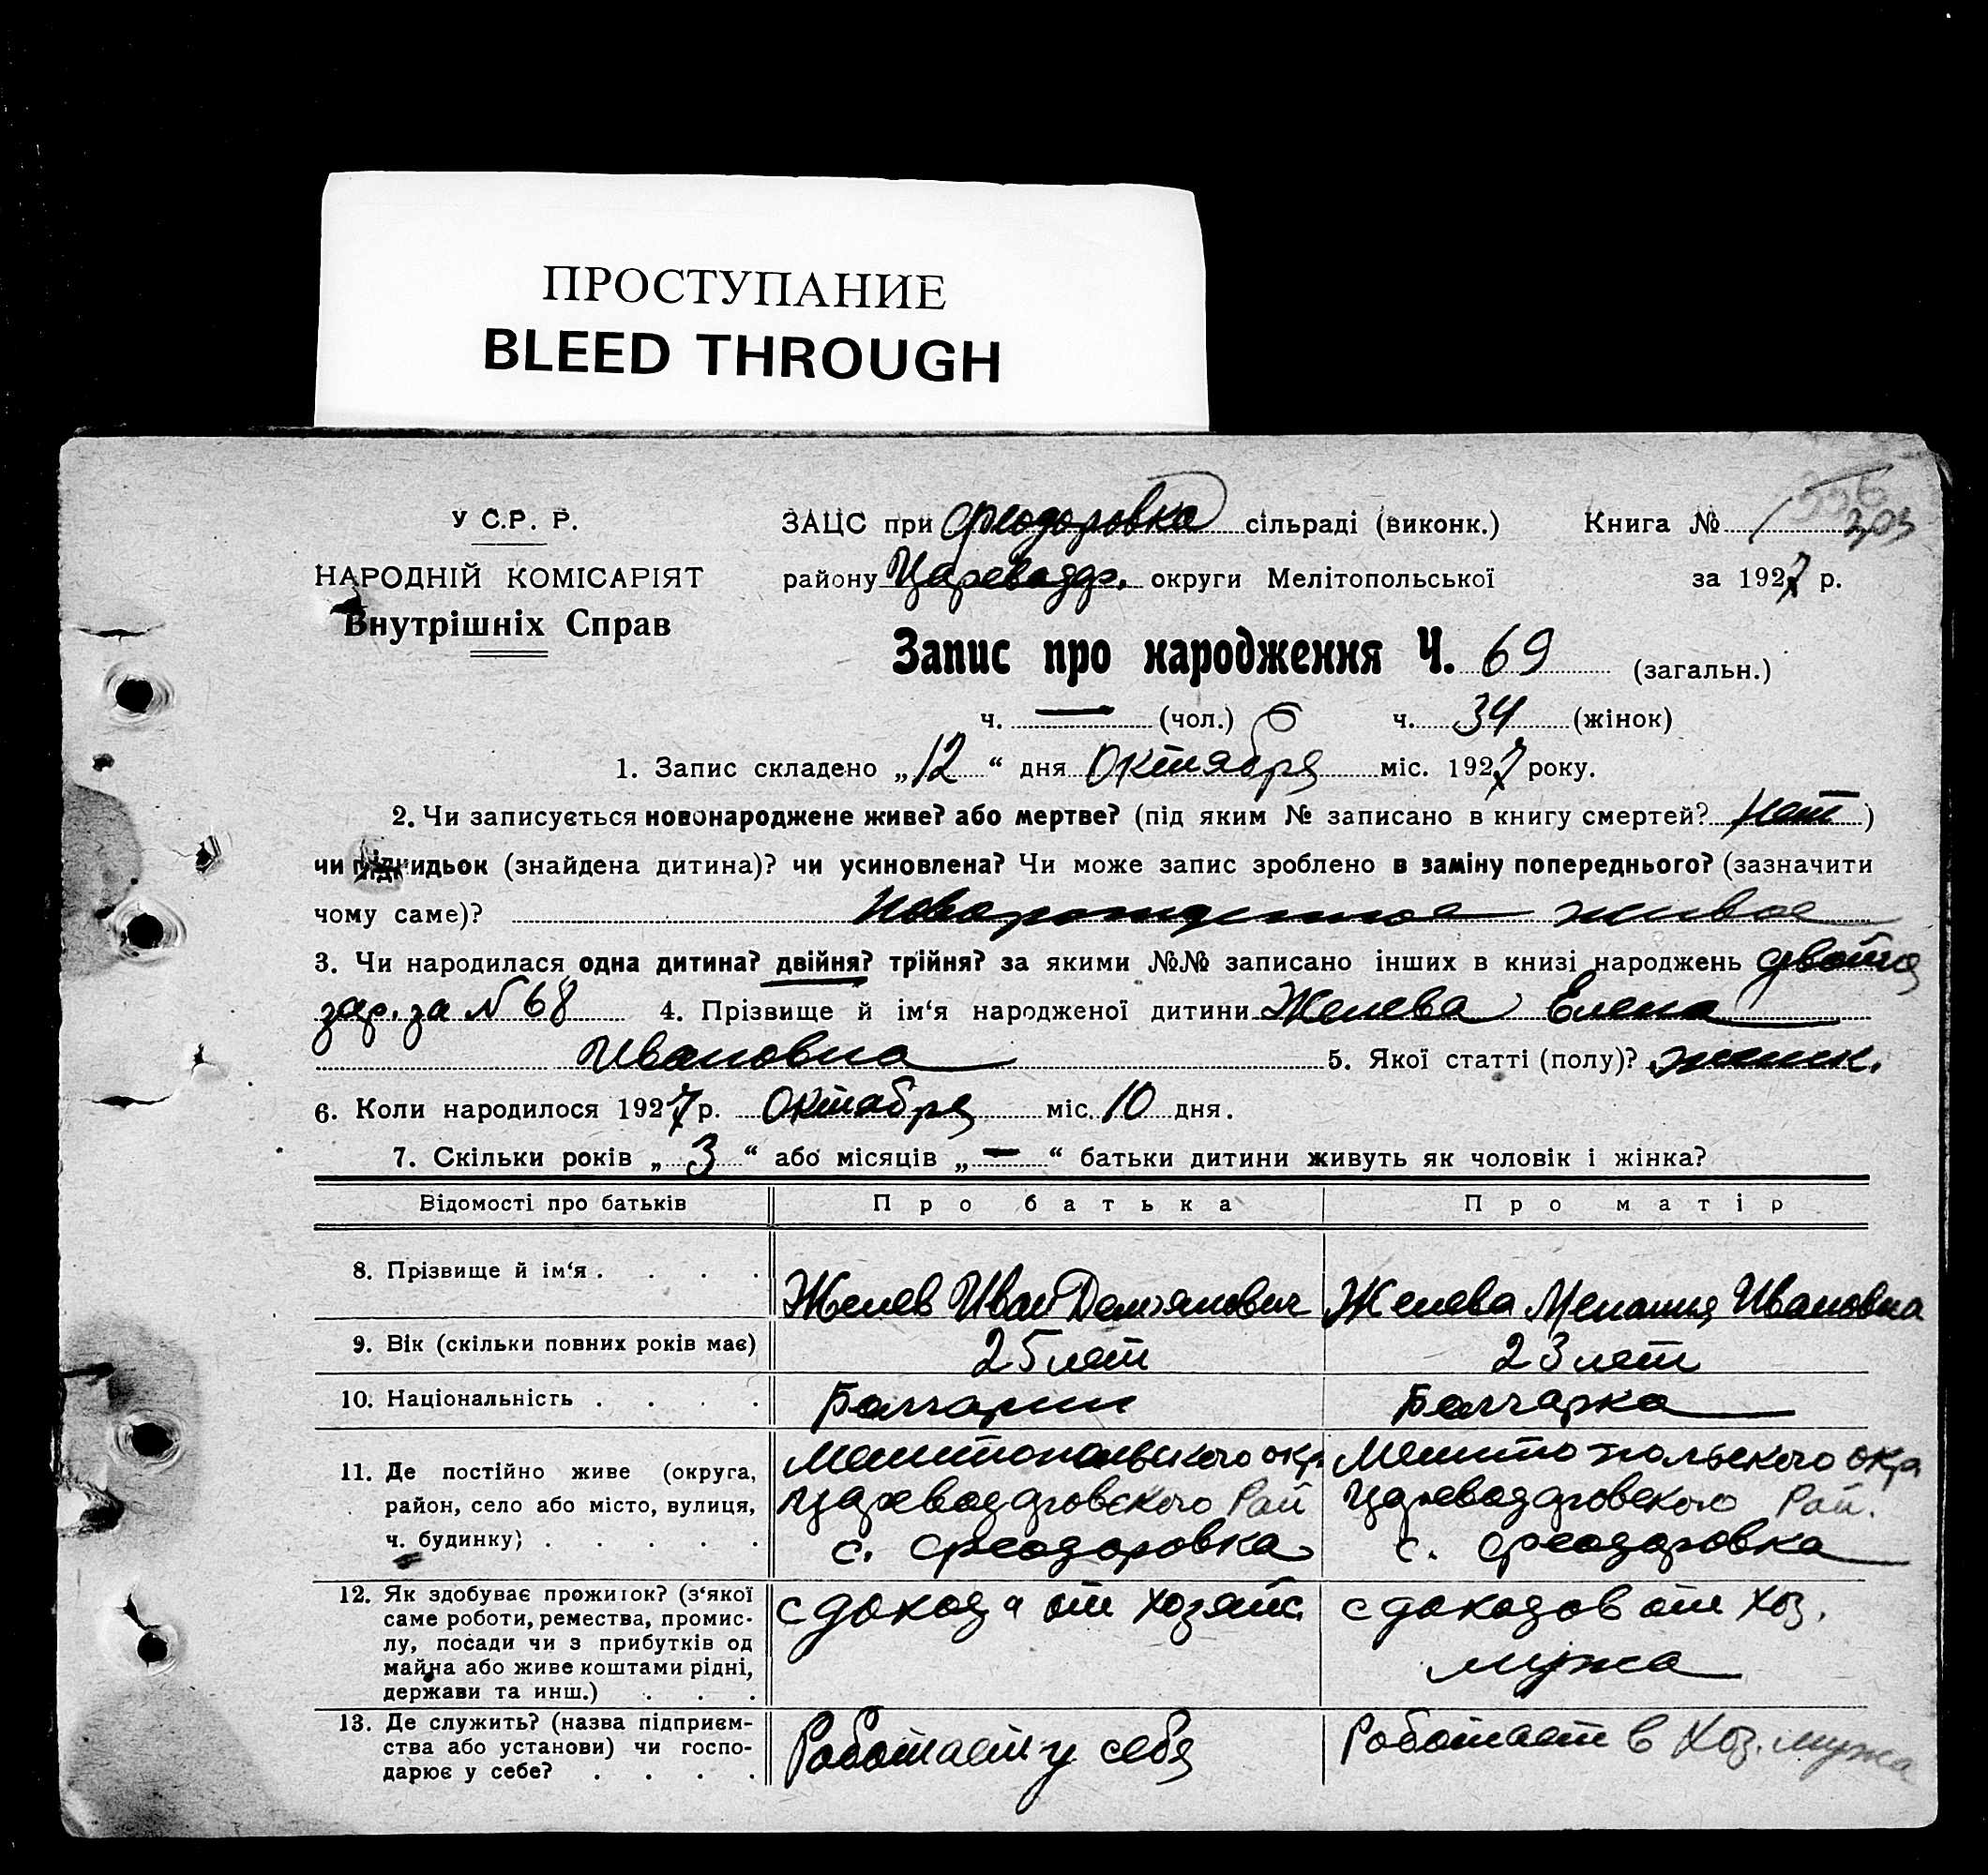 ПРОСТУПАНИЕ
BLEED THROUGH
У С.Р. Р.
НАРОДНІЙ КОМІСАРІЯТ
Внутрішніх Справ
ЗАЦС при Феодоровка сільраді (виконк.) Книга №
району Цареводар. округи Мелітопольської за 1927 р.
Запис про народження Ч. 69 (загальн.)
ч. — (чол.) 6 ч. 34 (жінок)
1. Запис складено „12“ дня Октября міс. 1927 року.
2. Чи записується новонароджене живе? або мертве? (під яким № записано в книгу смертей? нет)
чи підкидьок (знайдена дитина)? чи усиновлена? Чи може запис зроблено в заміну попереднього? (зазначити
чому саме)? Новорожденное живое
3. Чи народилася одна дитина? двійня? трійня? за якими №№ записано інших в книзі народжень двойня
зар. за N 68 4. Прізвище й ім‘я народженої дитини Желева Елена
Ивановна 5. Якої статті (полу)? женск.
6. Коли народилося 1927 р. Октября міс. 10 дня.
7. Скільки років „3“ або місяців „—“ батьки дитини живуть як чоловік і жінка?
Відомості про батьків Про батька Про матір
8. Прізвище й ім‘я . . . . Желев Иван Демьянович Желева Мелания Ивановна
9. Вік (скільки повних років має) 25 лет 23 лет
10. Національність . . . . Болгарин Болгарка
11. Де постійно живе (округа, Мелитопольского окр. Мелитопольского окр
район, село або місто, вулиця, Цареводаровского Рай Цареводаровского Рай.
ч. будинку) . . . . . с. Феодоровка с. Феодоровка
12. Як здобуває прожиток? (з‘якої с дохода от хозяйс. с доходов от хоз.
саме роботи, ремества, промис- мужа
лу, посади чи з прибутків од
майна або живе коштами рідні,
держави та инш.) . . .
13. Де служить? (назва підприєм- Работает у себя Работает в хоз. мужа
ства або установи) чи госпо-
дарює у себе? . . . .